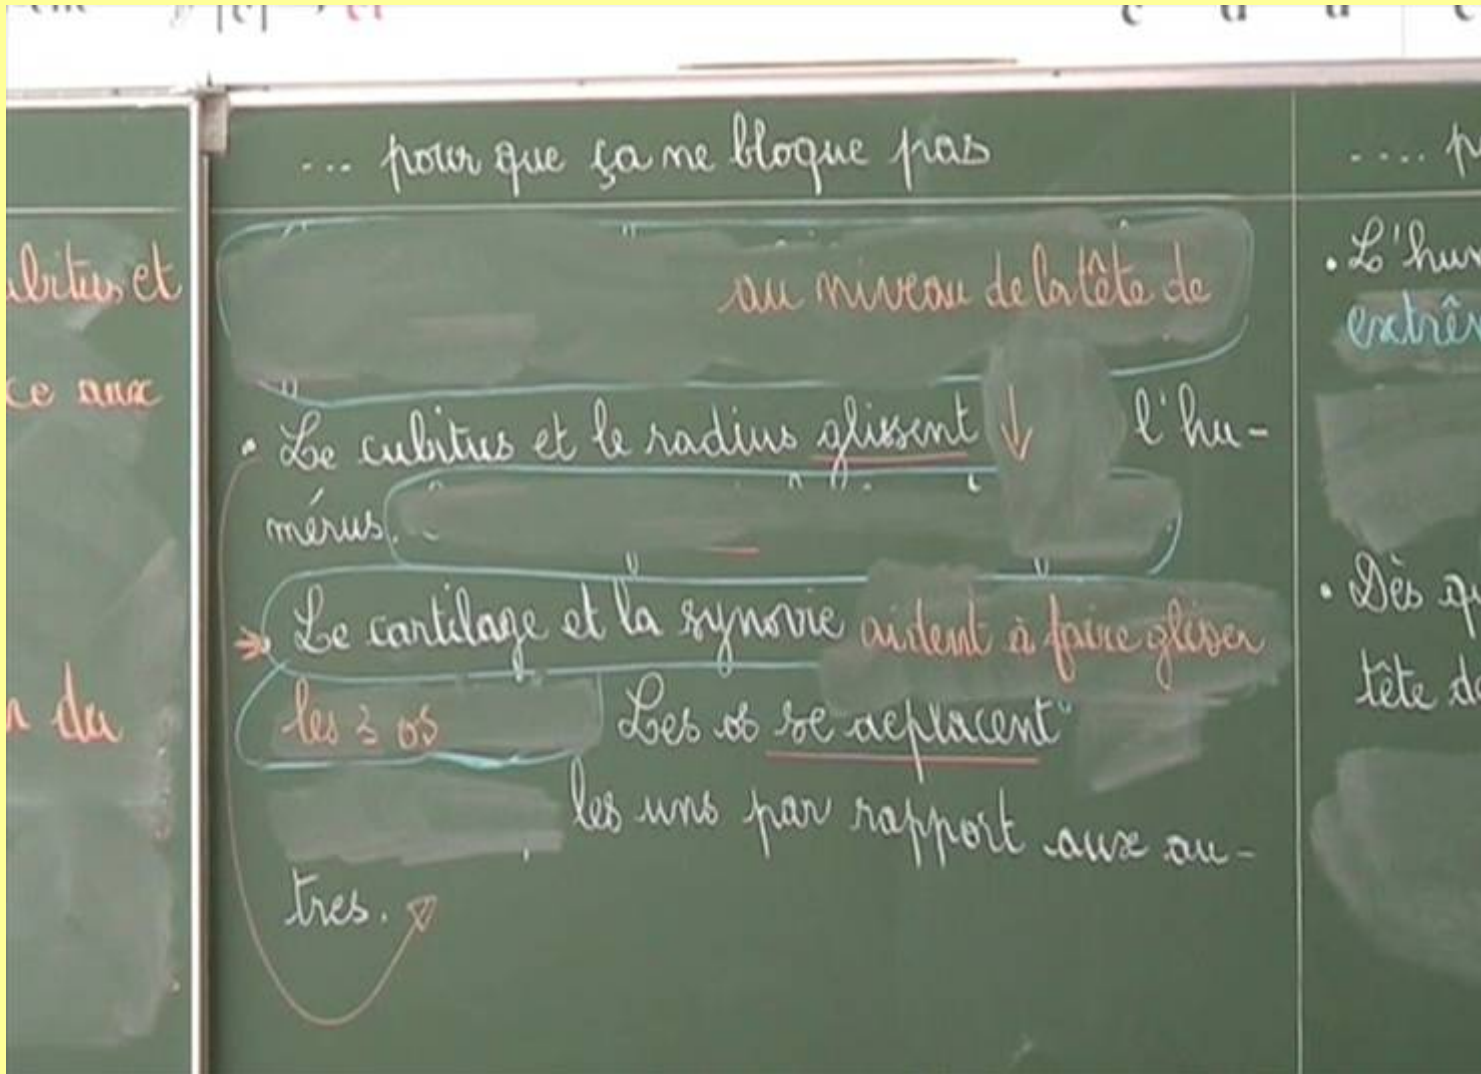 ... pour que ça ne bloque pas
au niveau de la tête de
• Le cubitus et le radius glissent ↓ l'hu-
mérus.
→ Le cartilage et la synovie aident à faire glisser
les 3 os Les os se déplacent
les uns par rapport aux au-
tres.
ubitus et
ce aux
n du
.... p
• L'hum
extrêm
• Dès qu
tête de